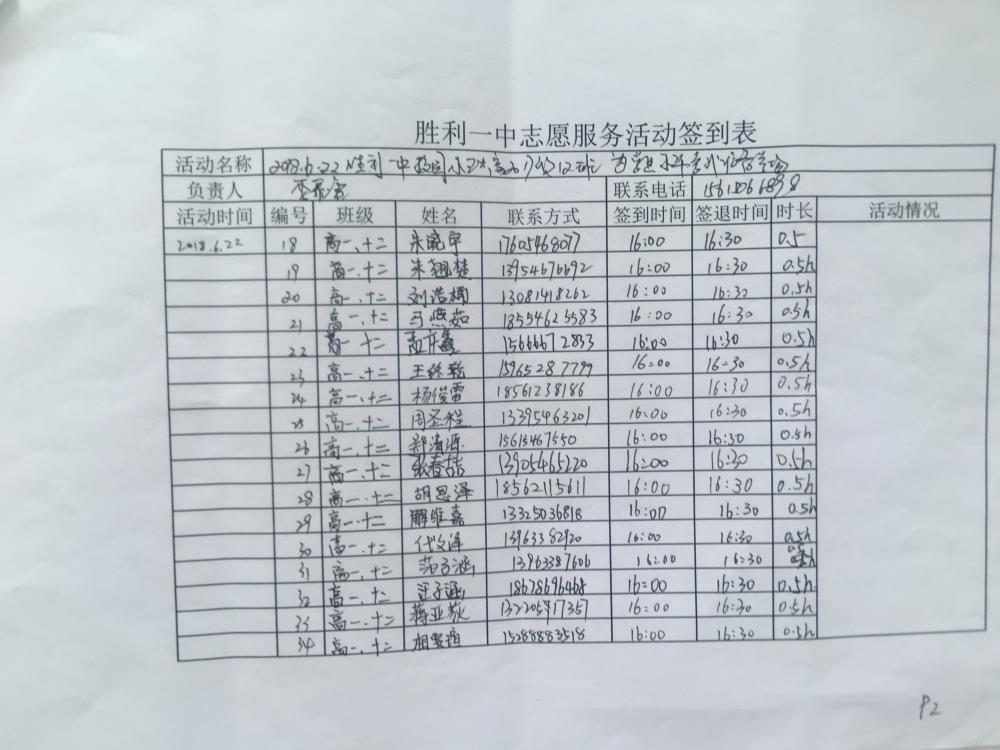 胜利一中志愿服务活动签到表
活动名称 2018.6.22 胜利一中
负责人 联系电话
活动时间 编号 班级 姓名 联系方式 签到时间 签退时间 时长 活动情况
2018.6.22 18 高一、十二 朱晓宇 17605468077 16:00 16:30 0.5
19 高一、十二 朱翘楚 13954676692 16:00 16:30 0.5h
20 高一、十二 刘浩楠 13081418262 16:00 16:30 0.5h
21 高一、十二 马燕茹 18554625583 16:00 16:30 0.5h
22 高一、十二 孟庆鑫 15666672833 16:00 16:30 0.5h
23 高一、十二 王终乾 15965287799 16:00 16:30 0.5h
24 高一、十二 杨俊雷 18561238186 16:00 16:30 0.5h
25 高一、十二 周圣程 13395463201 16:00 16:30 0.5h
26 高一、十二 郑清源 15615467550 16:00 16:30 0.5h
27 高一、十二 张春喆 13905465220 16:00 16:30 0.5h
28 高一、十二 胡恩泽 18562115611 16:00 16:30 0.5h
29 高一、十二 维嘉 13325036818 16:00 16:30 0.5h
30 高一、十二 代文泽 13963382920 16:00 16:30 0.5h
31 高一、十二 范子涵 13963387606 16:00 16:30
32 高一、十二 子涵 18678696468 16:00 16:30 0.5h
33 高一、十二 蒋亚荻 16:00 16:30 0.5h
34 高一、十二 相 15288883518 16:00 16:30 0.5h
P2